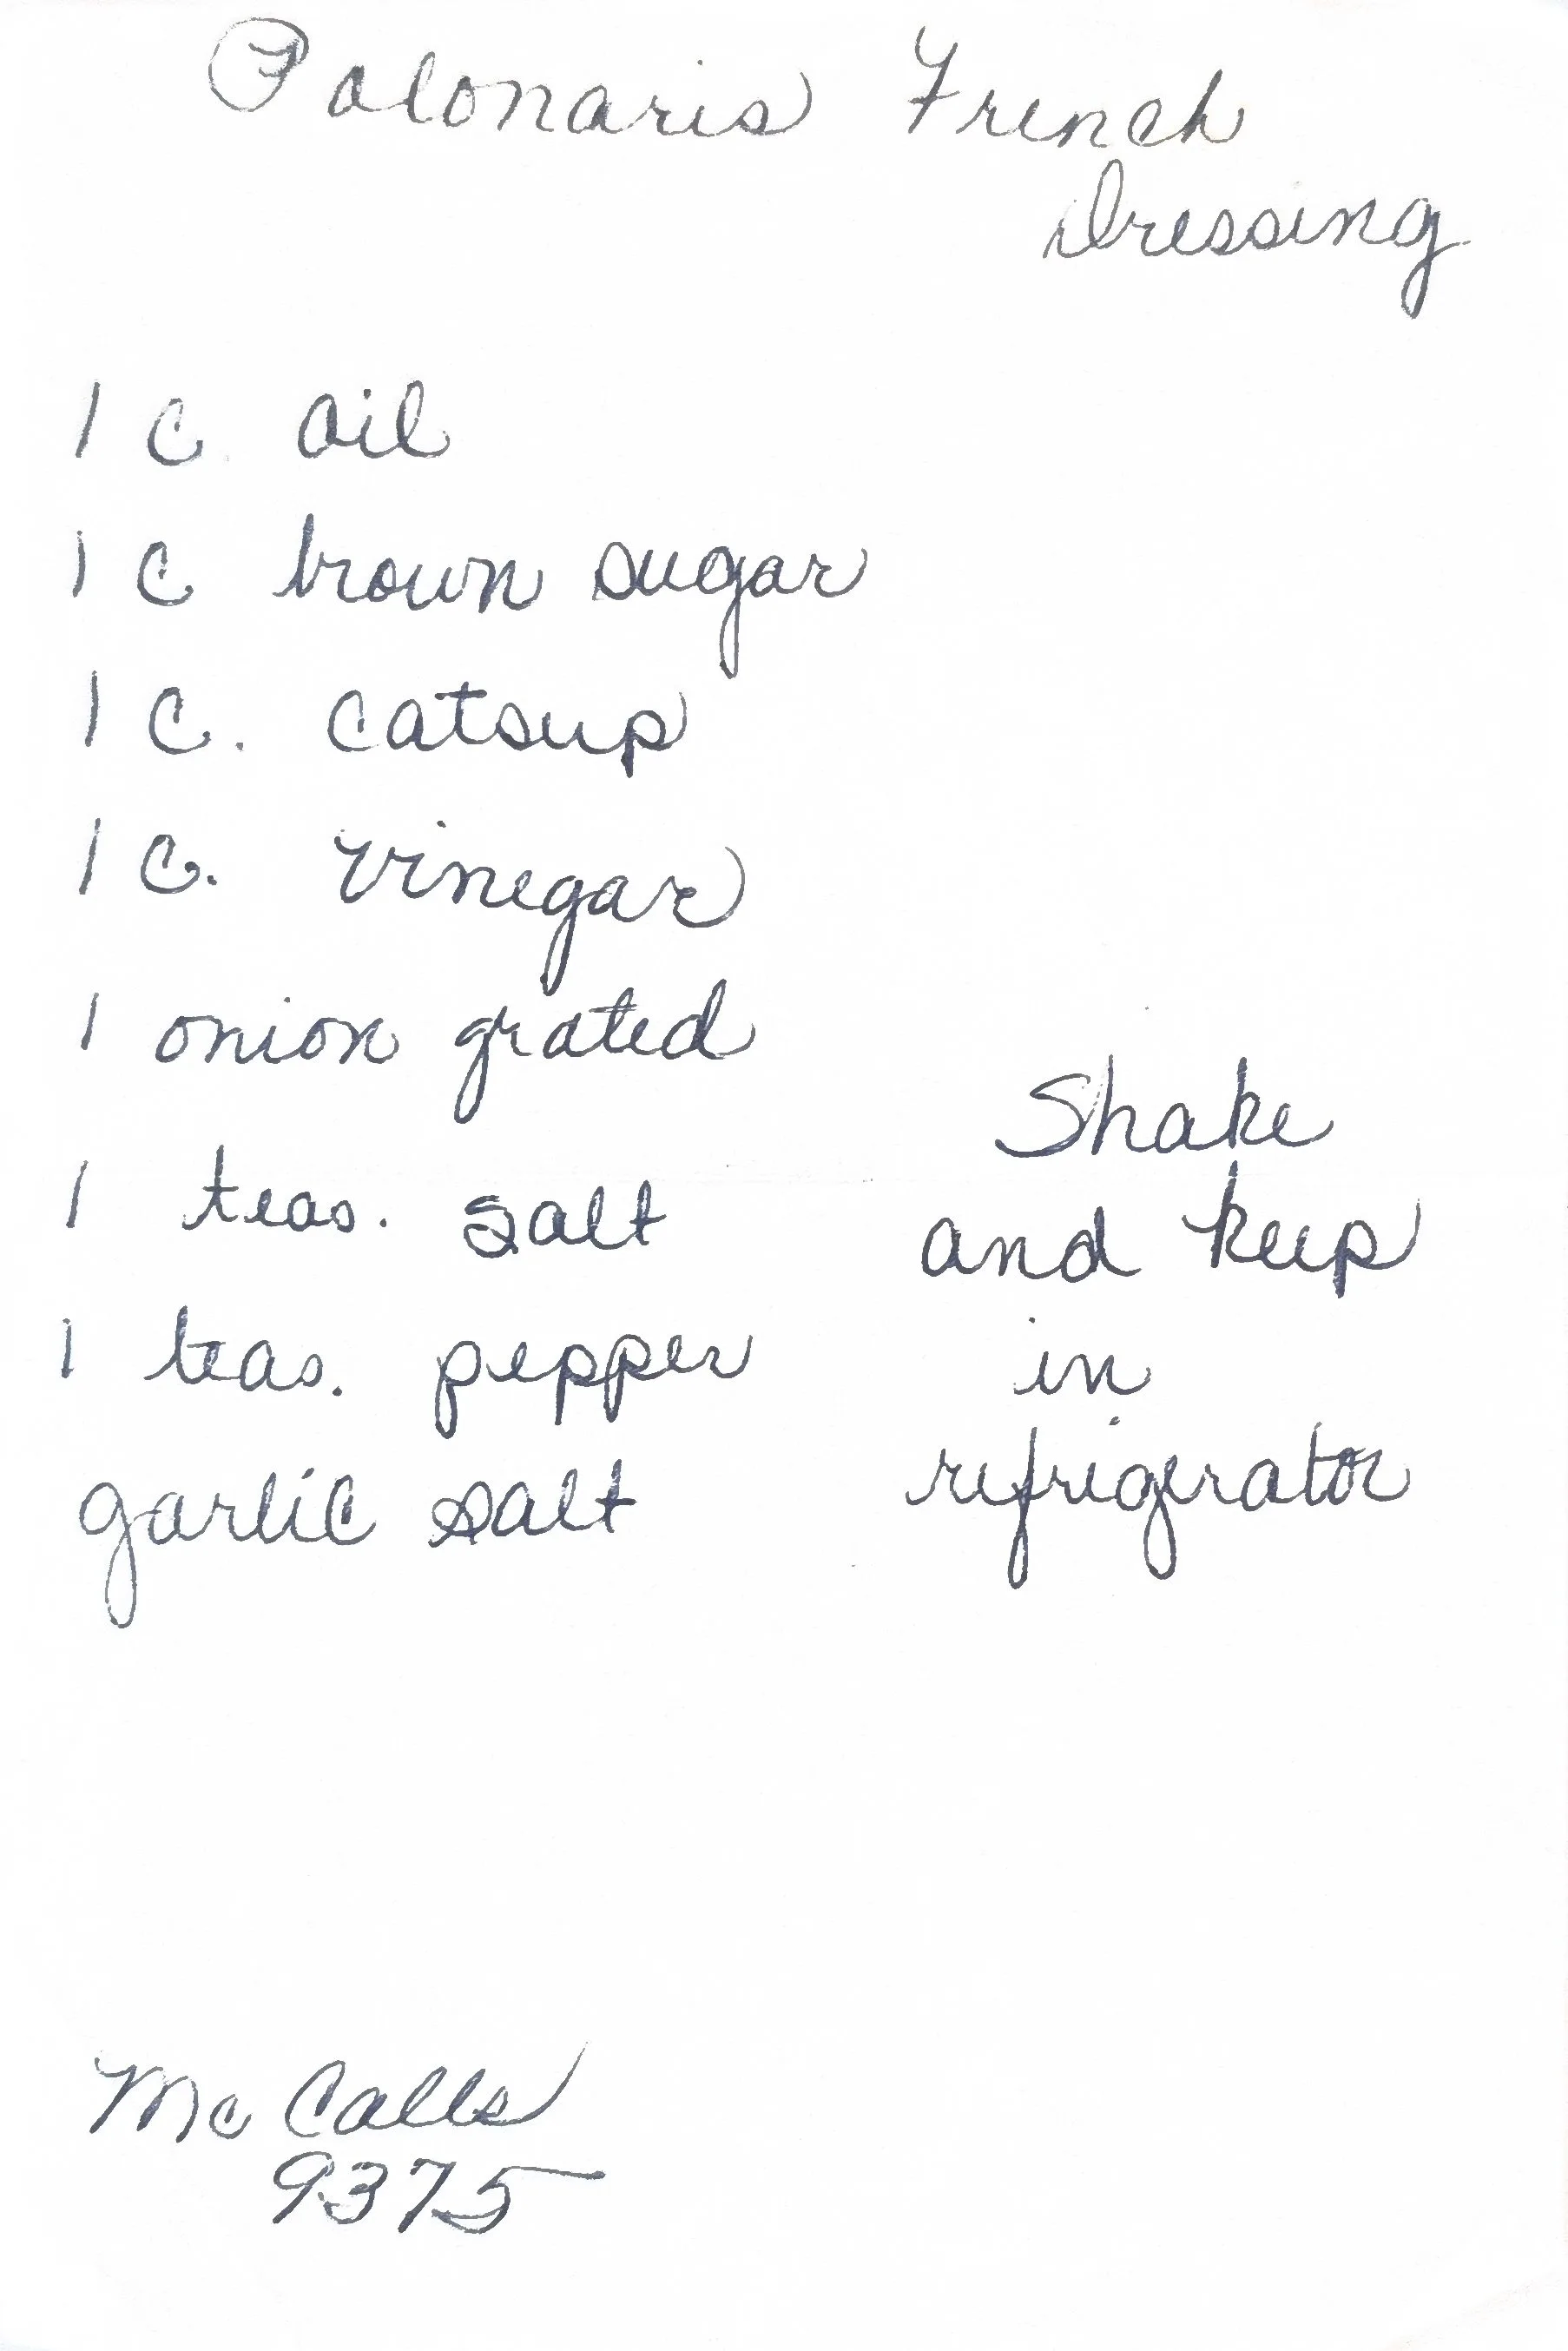 Polonaris French
Dressing
1 c. oil
1 c brown sugar
1 c. catsup
1 c. vinegar
1 onion grated
1 teas. salt
1 teas. pepper
garlic salt
Shake
and keep
in
refrigerator
Mc Calls
9375